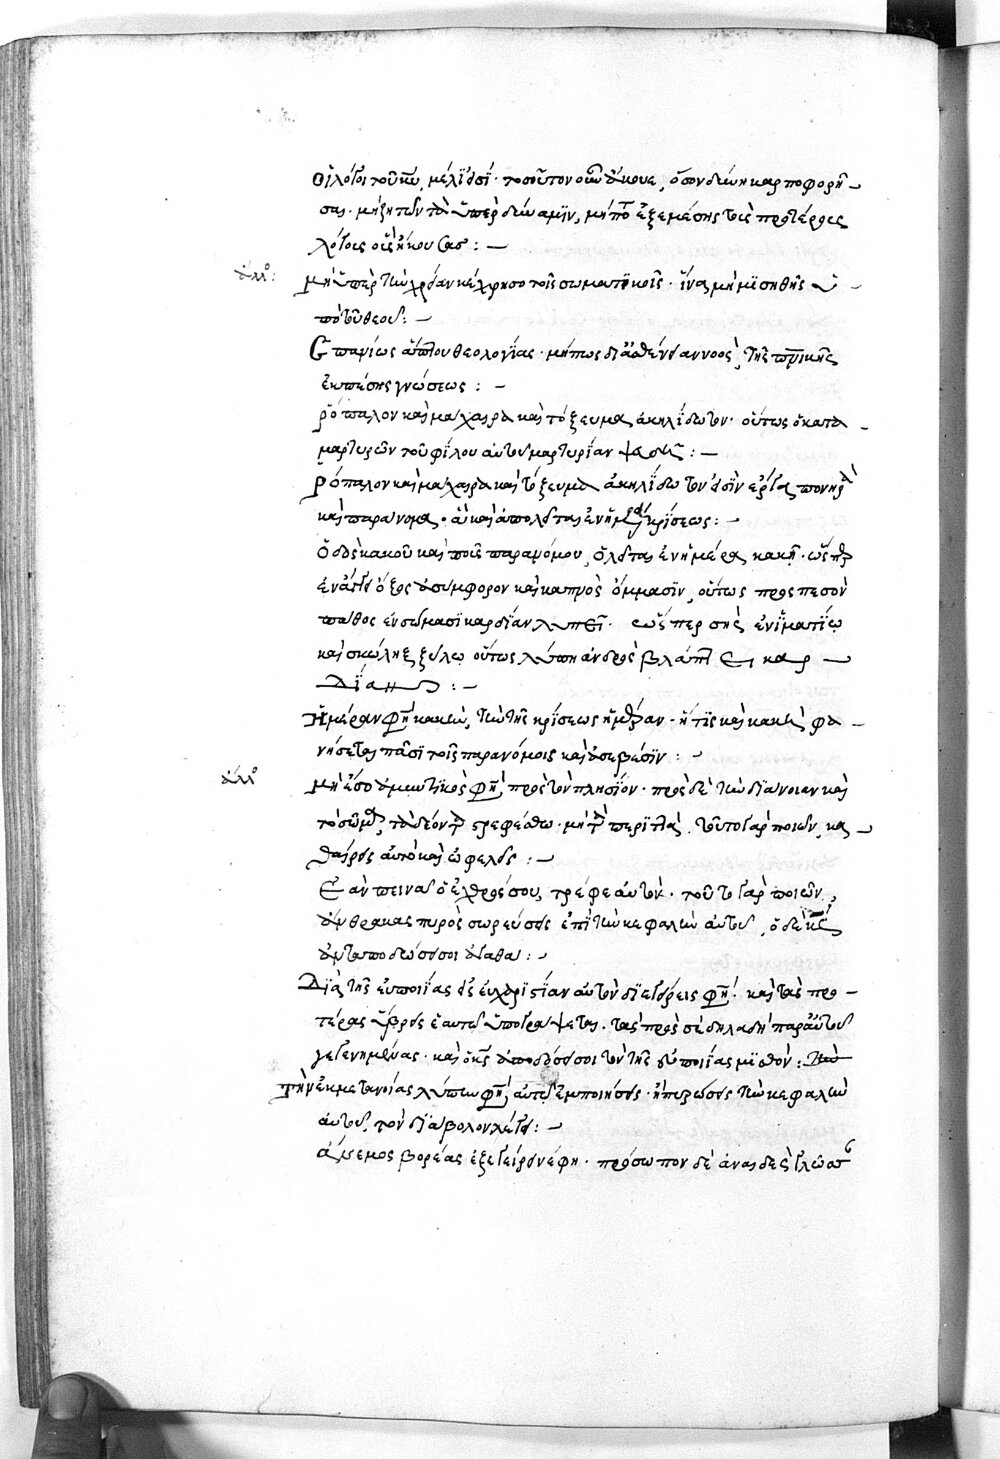 οἱ λόγοι τοῦ κυ, μέλι εἰσί· τοσοῦτον οὖν ἄκουε, ὅσον δύνῃ καρποφορῆ
σαι· μὴ ζητῶν τὰ ὑπὲρ δύναμιν, μήποτε ἐξεμέσῃς τοῖς προτέροις
λόγοις οἷς ἤκουσας : —
ἄλλο:
μὴ ὑπὲρ τὴν χρείαν κέχρησο τοῖς σωματικοῖς· ἵνα μὴ μισηθῇς ὑ
πὸ τοῦ θεοῦ: —
Σπανίως ἅπτου θεολογίας· μήπως διασθενείαν νοὸς, τῆς πνικῆς
ἐκπέσῃς γνώσεως : —
ῥόπαλον καὶ μάχαιρα καὶ τόξευμα ἀκηλίδωτον· οὕτως ὁ κατα
μαρτυρῶν τοῦ φίλου αὐτοῦ μαρτυρίαν ψευδῆ : —
ῥόπαλον καὶ μάχαιρα καὶ τόξευμα ἀκηλίδωτον εἰσὶν ἔργα πονηρὰ
καὶ παράνομα· ἃ καὶ ἀπολεῖται ἐν ἡμέρᾳ κρίσεως: —
Ὁδὸς κακοῦ καὶ ποῦς παρανόμου, ὀλεῖται ἐν ἡμέρᾳ κακῇ· ὥσπερ
ὄξος ἀσύμφορον καὶ καπνὸς ὄμμασιν, οὕτως προσπεσὸν
πάθος ἐν σώματι καρδίαν λυπεῖ· ὥσπερ σὴς ἐν ἱματίῳ
καὶ σκώληξ ξύλῳ οὕτως λύπη ἀνδρὸς βλάπτει καρ
δίαν : —
Ἡμέραν φη κακὴν, τὴν τῆς κρίσεως ἡμέραν· ἥτις καὶ κακὴ φα
νήσεται πᾶσι τοῖς παρανόμοις καὶ ἀσεβέσιν : —
ἄλλο
μὴ ἔσο ἀμυντικὸς φη, πρὸς τὸν πλησίον· πρὸς δὲ τὴν διάνοιαν καὶ
τὸ σῶμα, τὰ δέοντα τρεφέσθω· μὴ τὰ περιττὰ, τοῦτο γὰρ ποιῶν, κα
θαίρεις αὐτὸ καὶ ὠφελεῖς : —
Ἐὰν πεινᾷ ὁ ἐχθρός σου, τρέφε αὐτόν· τοῦτο γὰρ ποιῶν,
ἄνθρακας πυρὸς σωρεύσεις ἐπὶ τὴν κεφαλὴν αὐτοῦ, ὁ δὲ κς
ἀνταποδώσει σοι ἀγαθά : —
Διὰ τῆς εὐποιίας εἰς εὐχαριστίαν αὐτὸν διεγείρεις φη· καὶ τὰς προ
τέρας ὕβρεις ἑαυτοῦ ὑπογράψεται, τὰς πρὸς σὲ δηλαδὴ παρ' αὐτοῦ
γεγενημένας· καὶ ὁ κς ἀποδώσει σοι τὸν τῆς εὐποιίας μισθόν : τὴν
τὴν ἐκ μετανοίας λύπην φη, αὐτῷ ἐμποιήσεις· ἢ πυρώσεις τὴν κεφαλὴν
αὐτοῦ, τὸν διάβολον λέγει : —
ἄνεμος βορέας ἐξεγείρει νέφη· πρόσωπον δὲ ἀναιδὲς γλῶσσ